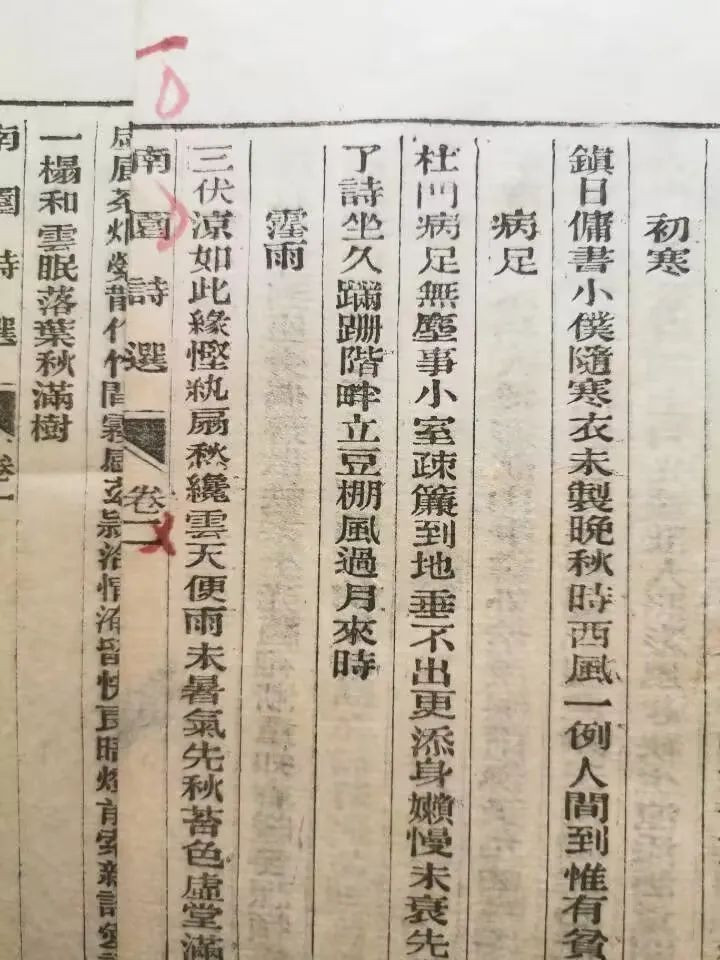 初寒
鎮日傭書小僕隨寒衣未製晚秋時西風一例人間到惟有貧
病足
杜門病足無塵事小室疎簾到地垂不出更添身嬾慢未衰先
了詩坐久蹣跚階畔立豆棚風過月來時
霪雨
三伏涼如此緣慳紈扇愁纔雲天便雨未暑氣先秋苔色虛堂滿
南園詩選 卷二
一榻和雲眠落葉秋滿樹
南園詩選 卷一